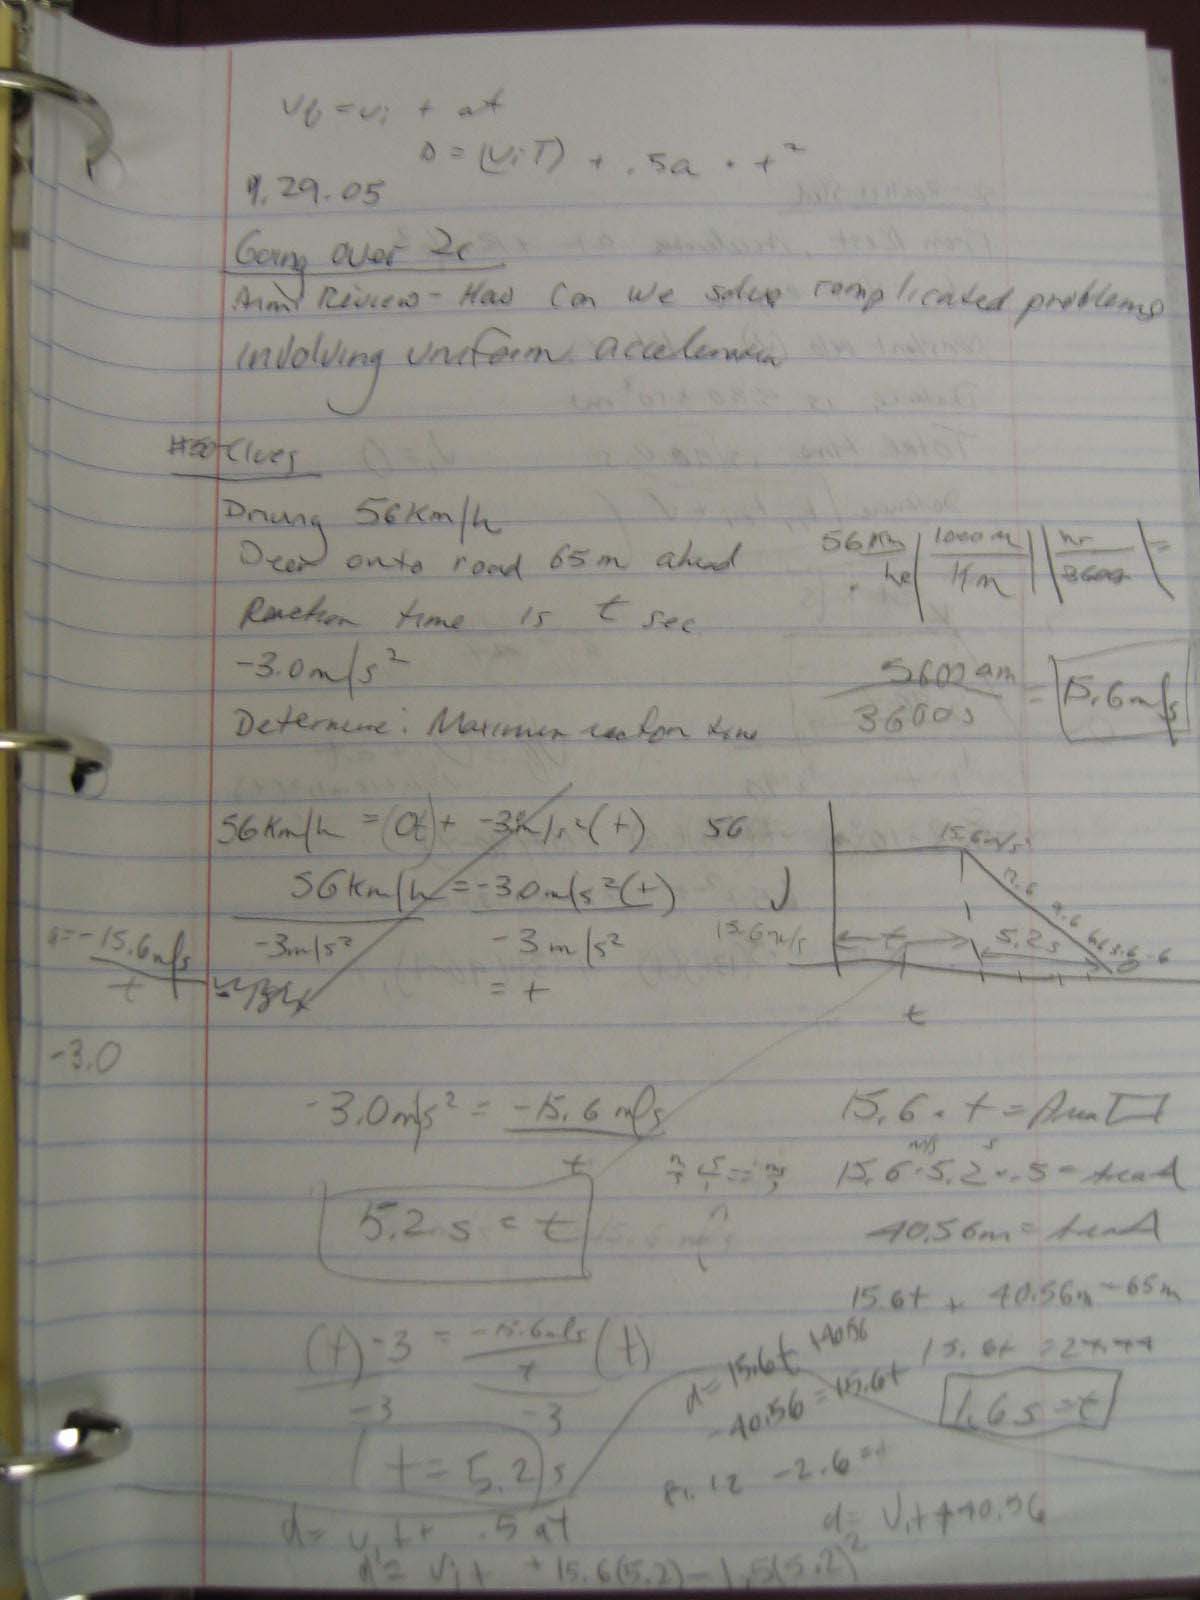 Vf = Vi + at
D = (ViT) + .5a · t²
9.29.05
Going over 2c
Aim: Review - How Can We solve complicated problems
involving uniform acceleration
Driving 56 Km/h
Deer onto road 65 m ahead
Reaction time is t sec
-3.0 m/s²
Determine: Maximum reaction time
56 Km | 1000 m | hr =
hr | 1 Km | 3600
56000 m
3600 s
= 15.6 m/s
56 Km/h = (0t) + -3 m/s² (t) 56
56 km/h = -3.0 m/s² (t)
-3 m/s² -3 m/s²
= t
15.6 m/s
a = -15.6 m/s
t
-3.0
15.6 m/s
12.6
9.6
t 5.2 s
t
-3.0 m/s² = -15.6 m/s
t
5.2 s = t
15.6 · t = Area
15.6 · 5.2 · .5 =
m/s s
40.56 m =
15.6t + 40.56 m = 65 m
15.6t = 24.44
1.6 s = t
(t) -3 = -15.6 m/s (t)
t
-3 -3
t = 5.2 s
d = 15.6t + 40.56
-40.56 = 15.6t
81.12 -2.6 = t
d = Vit + .5 at
d = Vit + 40.56
d = Vit + 15.6(5.2) - 1.5(5.2)²